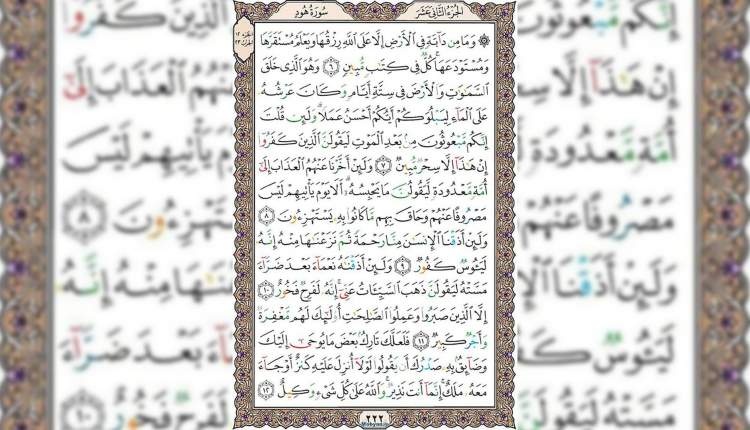 الجزء الثاني عشر
سورة هود
وَمَا مِن دَآبَّةٍ فِي ٱلْأَرْضِ إِلَّا عَلَى ٱللَّهِ رِزْقُهَا وَيَعْلَمُ مُسْتَقَرَّهَا
وَمُسْتَوْدَعَهَا كُلٌّ فِي كِتَٰبٍ مُّبِينٍ ٦ وَهُوَ ٱلَّذِي خَلَقَ
ٱلسَّمَٰوَٰتِ وَٱلْأَرْضَ فِي سِتَّةِ أَيَّامٍ وَكَانَ عَرْشُهُ
عَلَى ٱلْمَآءِ لِيَبْلُوَكُمْ أَيُّكُمْ أَحْسَنُ عَمَلًا وَلَئِن قُلْتَ
إِنَّكُم مَّبْعُوثُونَ مِنۢ بَعْدِ ٱلْمَوْتِ لَيَقُولَنَّ ٱلَّذِينَ كَفَرُوا
إِنْ هَٰذَآ إِلَّا سِحْرٌ مُّبِينٌ ٧ وَلَئِنْ أَخَّرْنَا عَنْهُمُ ٱلْعَذَابَ إِلَىٰٓ
أُمَّةٍ مَّعْدُودَةٍ لَّيَقُولُنَّ مَا يَحْبِسُهُ أَلَا يَوْمَ يَأْتِيهِمْ لَيْسَ
مَصْرُوفًا عَنْهُمْ وَحَاقَ بِهِم مَّا كَانُوا بِهِ يَسْتَهْزِءُونَ ٨
وَلَئِنْ أَذَقْنَا ٱلْإِنسَٰنَ مِنَّا رَحْمَةً ثُمَّ نَزَعْنَٰهَا مِنْهُ إِنَّهُ
لَيَـُٔوسٌ كَفُورٌ ٩ وَلَئِنْ أَذَقْنَٰهُ نَعْمَآءَ بَعْدَ ضَرَّآءَ
مَسَّتْهُ لَيَقُولَنَّ ذَهَبَ ٱلسَّيِّـَٔاتُ عَنِّيٓ إِنَّهُ لَفَرِحٌ فَخُورٌ ١٠
إِلَّا ٱلَّذِينَ صَبَرُوا وَعَمِلُوا ٱلصَّٰلِحَٰتِ أُولَٰٓئِكَ لَهُم مَّغْفِرَةٌ
وَأَجْرٌ كَبِيرٌ ١١ فَلَعَلَّكَ تَارِكٌۢ بَعْضَ مَا يُوحَىٰٓ إِلَيْكَ
وَضَآئِقٌۢ بِهِ صَدْرُكَ أَن يَقُولُوا لَوْلَآ أُنزِلَ عَلَيْهِ كَنزٌ أَوْ جَآءَ
مَعَهُ مَلَكٌ إِنَّمَآ أَنتَ نَذِيرٌ وَٱللَّهُ عَلَىٰ كُلِّ شَيْءٍ وَكِيلٌ ١٢
٢٢٢